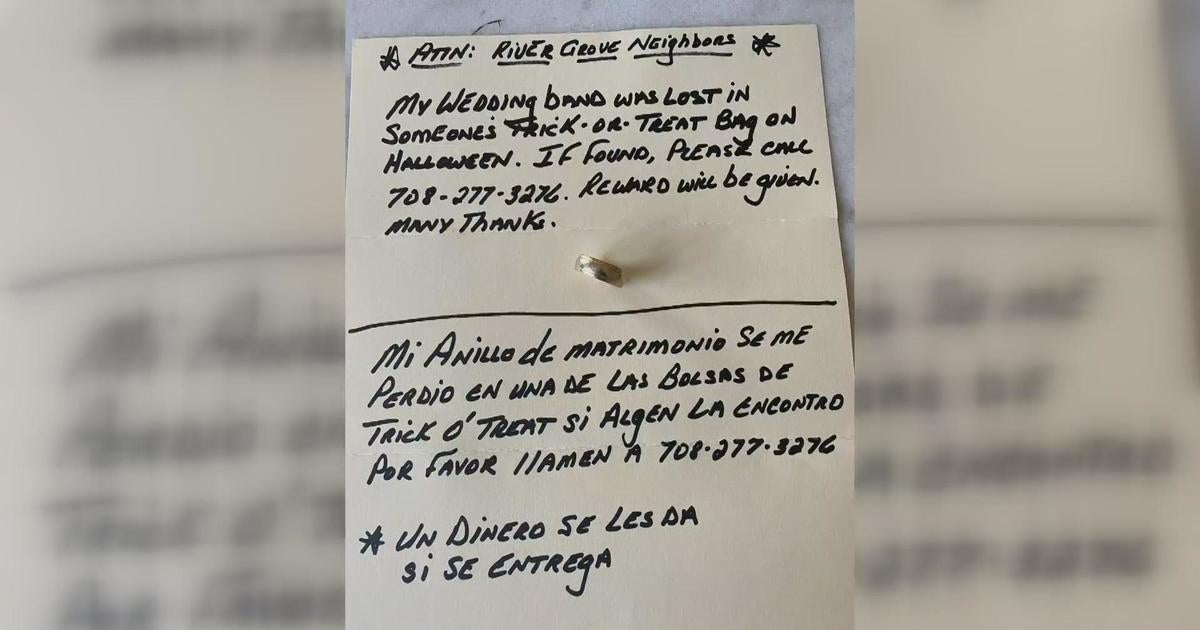 * ATTN: RIVER GROVE NEighbors *
MY WEDDiNg bAND WAS LOST iN
SOMEONE'S TRiCK·OR·TREAT BAg ON
HALLOWEEN. IF FOUND, PLEASE CALL
708-277-3276. REWARD will be giVEN.
MANY THANKS.
Mi ANillO de MATRiMONiO SE ME
PERDiO EN UNA DE LAS BOLSAS DE
TRiCK O' TREAT Si AlgEN LA ENCONTRO
POR FAVOR llAMEN A 708·277·3276
* UN DiNERO SE LES DA
Si SE ENTREgA